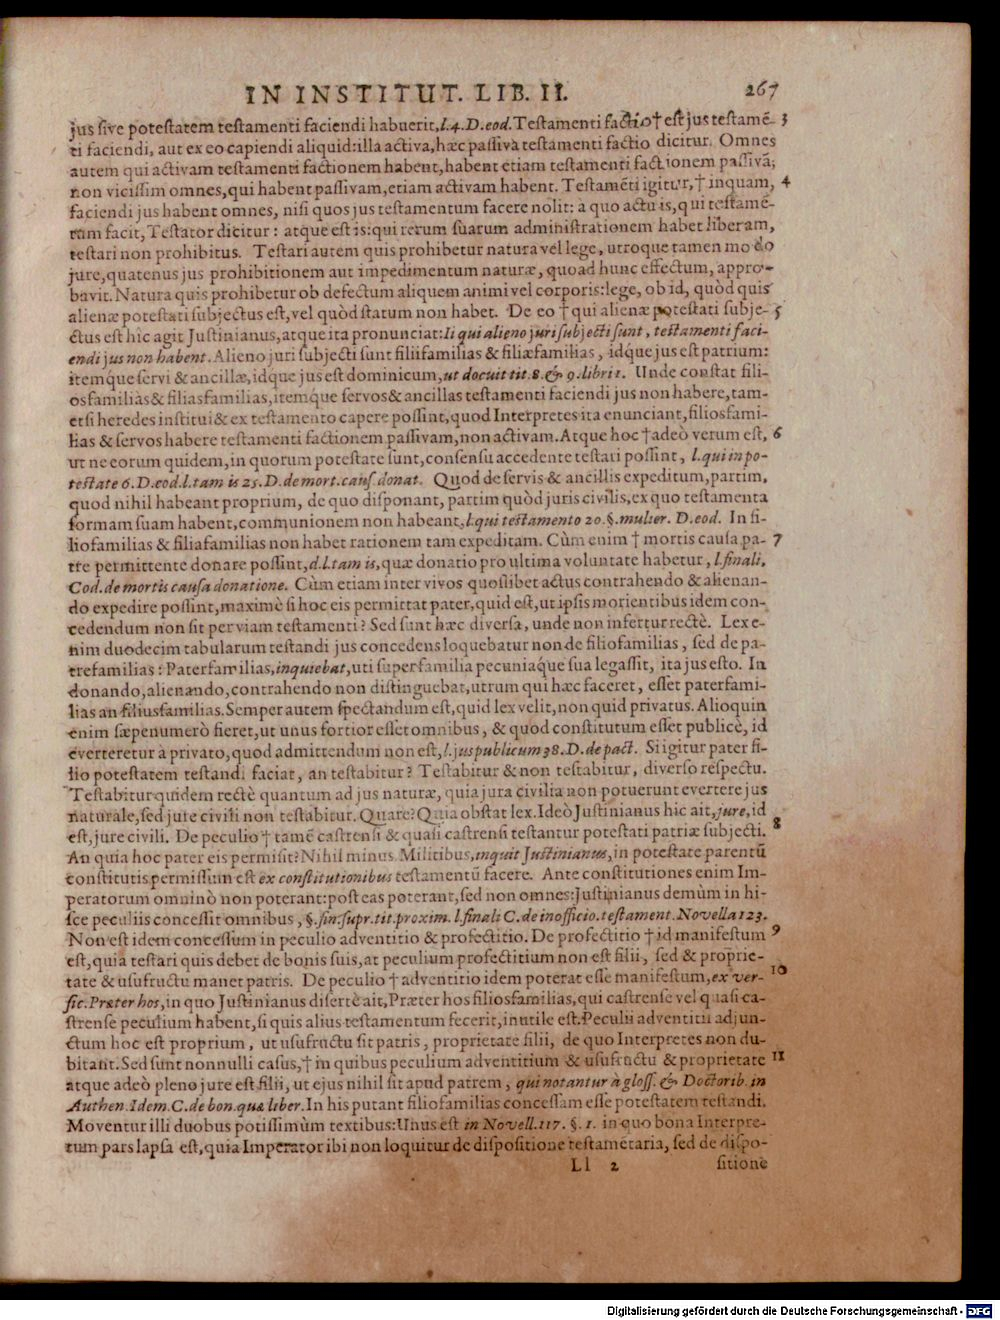 IN INSTITUT. LIB. II. 267
jus sive potestatem testamenti faciendi habuerit, l. 4. D. eod. Testamenti factio † est jus testamē- 3
ti faciendi, aut ex eo capiendi aliquid: illa activa, hæc passiva testamenti factio dicitur. Omnes
autem qui activam testamenti factionem habent, habent etiam testamenti factionem passivā;
non vicissim omnes, qui habent passivam, etiam activam habent. Testamēti igitur, † inquam, 4
faciendi jus habent omnes, nisi quos jus testamentum facere nolit: à quo actu is, qui testamē-
tum facit, Testator dicitur: atque est is: qui rerum suarum administrationem habet liberam,
testari non prohibitus. Testari autem quis prohibetur natura vel lege, utroque tamen modo
jure, quatenus jus prohibitionem aut impedimentum naturæ, quoad hunc effectum, appro-
bavit. Natura quis prohibetur ob defectum aliquem animi vel corporis: lege, ob id, quòd quis
alienæ potestati subjectus est, vel quòd statum non habet. De eo † qui alienæ potestati subje- 5
ctus est hîc agit Justinianus, atque ita pronunciat: Ii qui alieno juri subjecti sunt, testamenti faci-
endi jus non habent. Alieno juri subjecti sunt filiifamilias & filiæfamilias, idq́ue jus est patrium:
itemq́ue servi & ancillæ, idque jus est dominicum, ut docuit tit. 8. & 9. libri 1. Unde constat fili-
osfamilias & filiasfamilias, itemq́ue servos & ancillas testamenti faciendi jus non habere, tam-
etsi heredes institui & ex testamento capere possint, quod Interpretes ita enunciant, filiosfami-
lias & servos habere testamenti factionem passivam, non activam. Atque hoc † adeò verum est, 6
ut ne eorum quidem, in quorum potestate sunt, consensu accedente testari possint, l. qui in po-
testate 6. D. eod. l. tam is 25. D. de mort. caus. donat. Quod de servis & ancillis expeditum, partim,
quod nihil habeant proprium, de quo disponant, partim quòd juris civilis, ex quo testamenta
formam suam habent, communionem non habeant, l. qui testamento 20. §. mulier. D. eod. In fi-
liofamilias & filiafamilias non habet rationem tam expeditam. Cùm enim † mortis causa pa- 7
tre permittente donare possint, d. l. tam is, quæ donatio pro ultima voluntate habetur, l. finali,
Cod. de mortis causa donatione. Cùm etiam inter vivos quoslibet actus contrahendo & alienan-
do expedire possint, maximè si hoc eis permittat pater, quid est, ut ipsis morientibus idem con-
cedendum non sit per viam testamenti? Sed sunt hæc diversa, unde non infertur rectè. Lex e-
nim duodecim tabularum testandi jus concedens loquebatur non de filiofamilias, sed de pa-
trefamilias: Paterfamilias, inquiebat, uti super familia pecuniaq́ue sua legassit, ita jus esto. In
donando, alienando, contrahendo non distinguebat, utrum qui hæc faceret, esset paterfami-
lias an filiusfamilias. Semper autem spectandum est, quid lex velit, non quid privatus. Alioquin
enim sæpenumerò fieret, ut unus fortior esset omnibus, & quod constitutum esset publicè, id
everteretur à privato, quod admittendum non est, l. jus publicum 38. D. de pact. Si igitur pater fi-
lio potestatem testandi faciat, an testabitur? Testabitur & non testabitur, diverso respectu.
Testabitur quidem rectè quantum ad jus naturæ, quia jura civilia non potuerunt evertere jus
naturale, sed jure civili non testabitur. Quare? Quia obstat lex. Ideò Justinianus hîc ait, jure, id
est, jure civili. De peculio † tamē castrensi & quasi castrensi testantur potestati patriæ subjecti. 8
An quia hoc pater eis permisit? Nihil minus. Militibus, inquit Justinianus, in potestate parentū
constitutis permissum est ex constitutionibus testamentū facere. Ante constitutiones enim Im-
peratorum omninò non poterant: post eas poterant, sed non omnes: Justinianus demùm in hi-
sce peculiis concessit omnibus, §. fin. supr. tit. proxim. l. finali C. de inofficio. testament. Novella 123.
Non est idem concessum in peculio adventitio & profectitio. De profectitio † id manifestum 9
est, quia testari quis debet de bonis suis, at peculium profectitium non est filii, sed & proprie-
tate & usufructu manet patris. De peculio † adventitio idem poterat esse manifestum, ex ver- 10
sic. Præter hos, in quo Justinianus disertè ait, Præter hos filiosfamilias, qui castrense vel quasi ca-
strense peculium habent, si quis alius testamentum fecerit, inutile est. Peculii adventitii adjun-
ctum hoc est proprium, ut usufructu sit patris, proprietate filii, de quo Interpretes non du-
bitant. Sed sunt nonnulli casus, † in quibus peculium adventitium & usufructu & proprietate 11
atque adeò pleno jure est filii, ut ejus nihil sit apud patrem, qui notantur à gloss. & Doctorib. in
Authen. Idem. C. de bon. quæ liber. In his putant filiofamilias concessam esse potestatem testandi.
Moventur illi duobus potissimùm textibus: Unus est in Novell. 117. §. 1. in quo bona Interpre-
tum pars lapsa est, quia Imperator ibi non loquitur de dispositione testamētaria, sed de dispo-
Ll 2 sitione
Digitalisierung gefördert durch die Deutsche Forschungsgemeinschaft - DFG